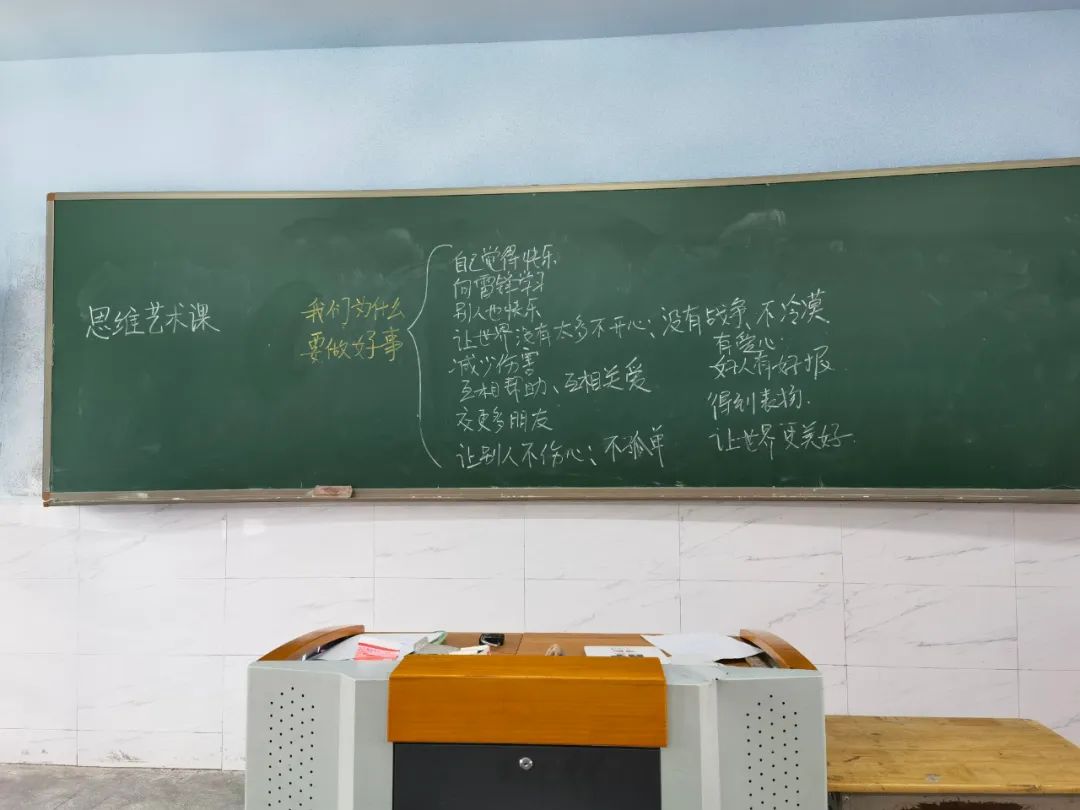 思维艺术课
我们为什么
要做好事
自己觉得快乐
向雷锋学习
别人也快乐
让世界没有太多不开心;没有战争、不冷漠
减少伤害
互相帮助、互相关爱
交更多朋友
让别人不伤心;不孤单
有爱心
好人有好报.
得到表扬.
让世界更美好.